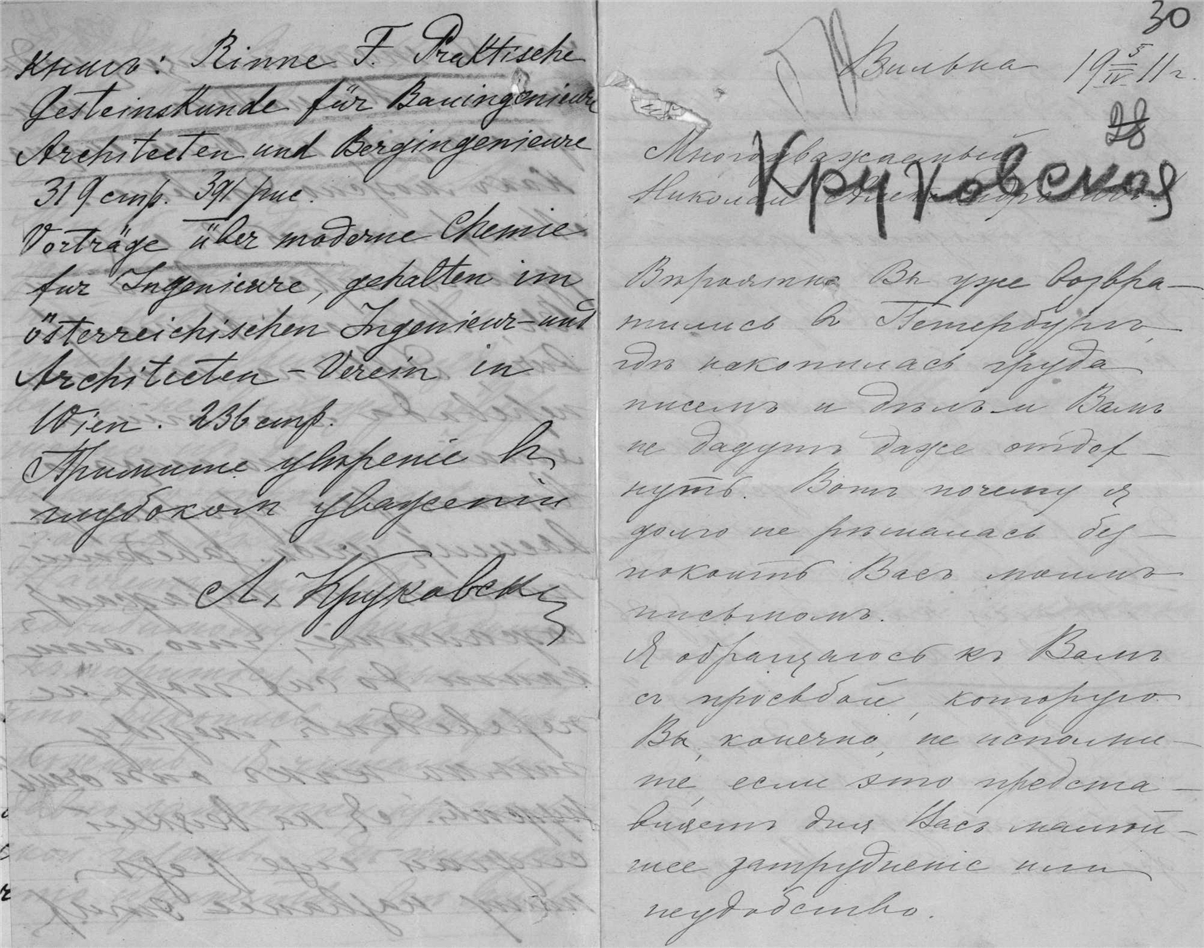 книгъ: Rinne F. Praktische
Gesteinskunde für Bauingenieure
Architecten und Bergingenieure
319 стр. 391 рис.
Vorträge über moderne Chemie
für Ingenieure, gehalten im
österreichischen Ingenieur- und
Architecten-Verein in
Wien. 236 стр.
Примите увѣреніе въ
глубокомъ уваженіи
Л. Круковск
30
Вильна 19 5/IV 11 г
28
Многоуважаемый
Николай
Круковская
Вѣроятно Вы уже возвра-
тились въ Петербургъ,
гдѣ накопилась груда
писемъ и дѣлъ и Вамъ
не дадутъ даже отдох-
нуть. Вотъ почему я
долго не рѣшалась без-
покоить Васъ моимъ
письмомъ.
Я обращаюсь къ Вамъ
съ просьбой, которую
Вы, конечно, не исполни-
те, если это предста-
вляетъ для Васъ малѣй-
шее затрудненіе или
неудобство.